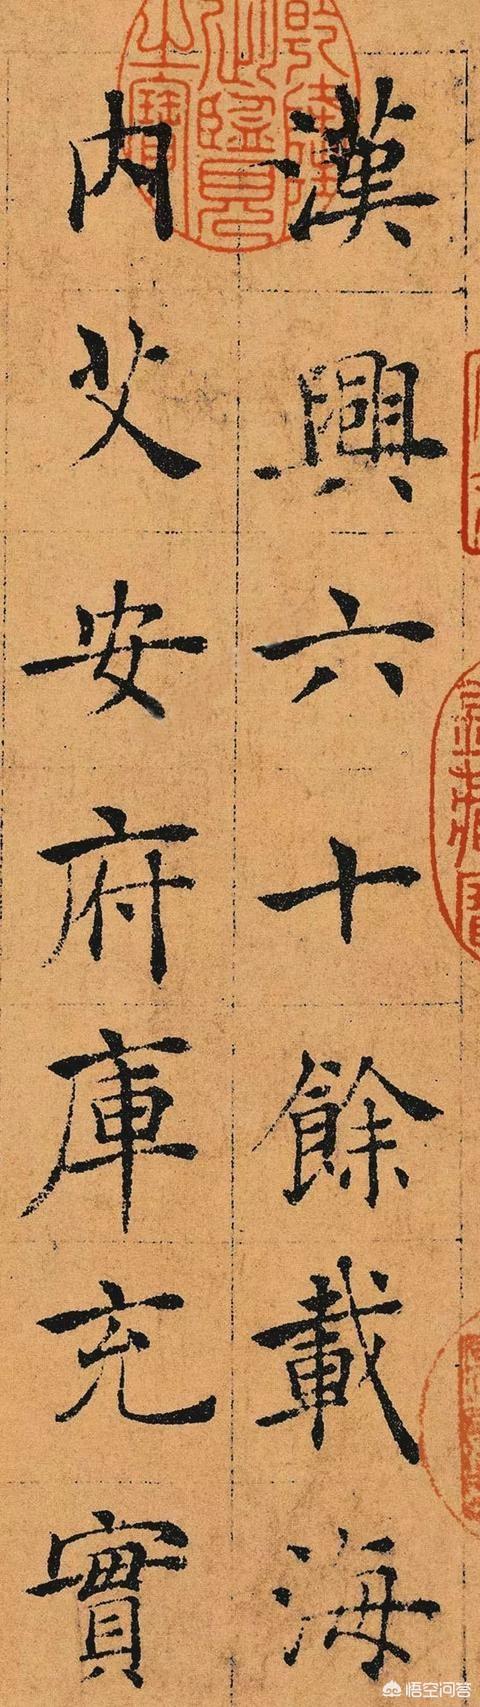 漢興六十餘載海
内艾安府庫充實
悟空问答